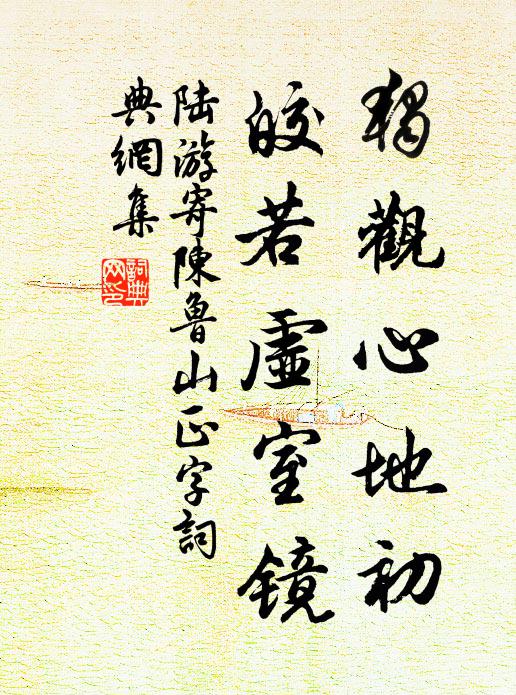 獨觀心地初
皎若虛室鏡
陆游寄陳魯山正字詞
典網集
詞典
网印